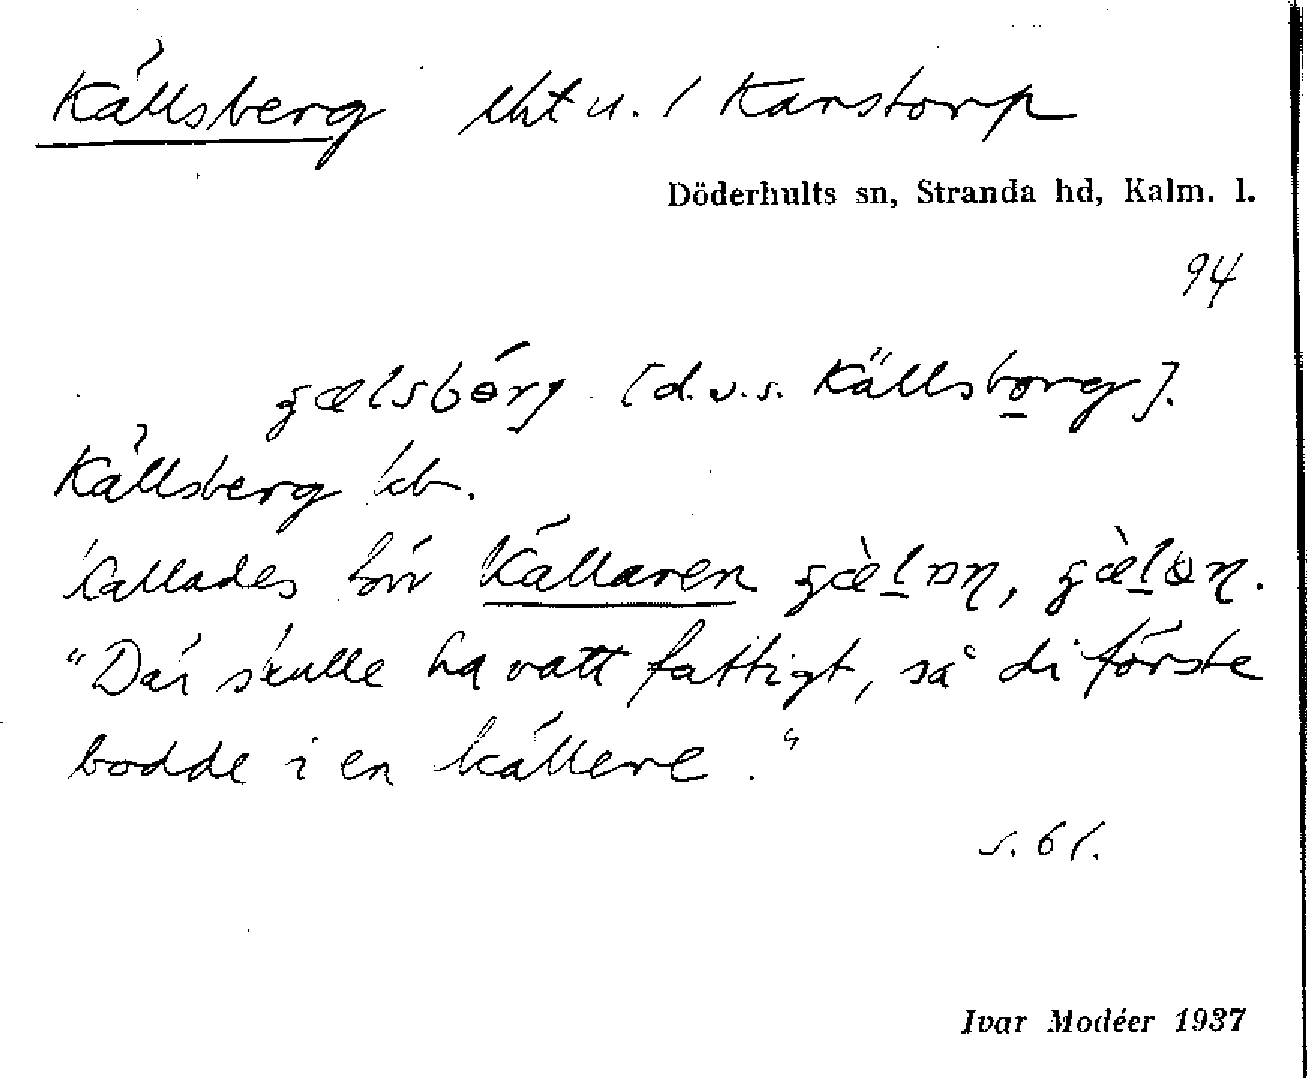 Källsberg lht u. / Karstorp
Döderhults sn, Stranda hd, Kalm. l.
94
[d.v.s. Källsborg].
Källsberg kb.
kallades förr Källaren
"Där skulle ha vatt fattigt, så di förste
bodde i en källere."
s. 61.
Ivar Modéer 1937